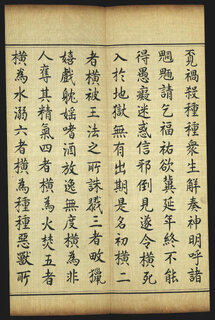 覓禍殺種種衆生解奏神明呼諸
魍魎請乞福祐欲冀延年終不能
得愚癡迷惑信邪倒見遂令橫死
入於地獄無有出期是名初橫二
者橫被王法之所誅戮三者畋獵
嬉戲躭婬嗜酒放逸無度橫為非
人奪其精氣四者橫為火焚五者
橫為水溺六者橫為種種惡獸所